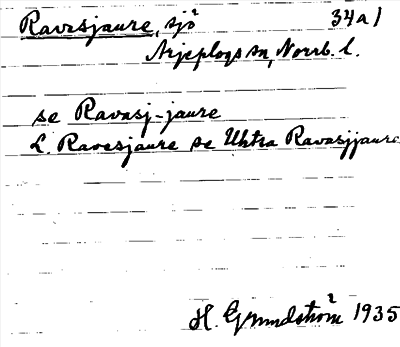 Ravesjaure, sjö 34a1
Arjeplogs sn, Norrb. l.
se Ravasj-jaure
L. Ravesjaure se Uhtra Ravasjjaure
H. Grundström 1935